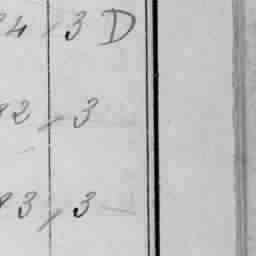 4, 3 D
2, 3
3, 3